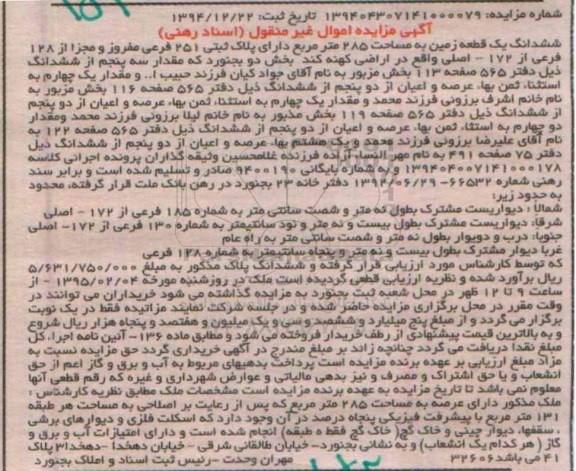 شماره مزایده: ۱۳۹۴۰۴۳۰۷۱۴۱۰۰۰۰۷۹ تاریخ ثبت: ۱۳۹۴/۱۲/۲۲
آگهی مزایده اموال غیر منقول (اسناد رهنی)
ششدانگ یک قطعه زمین به مساحت ۲۸۵ متر مربع دارای پلاک ثبتی ۲۵۱ فرعی مفروز و مجزا از ۱۲۸
فرعی از ۱۷۲ – اصلی واقع در اراضی کهنه کند بخش دو بجنورد که مقدار سه پنجم از ششدانگ
ذیل دفتر ۵۶۵ صفحه ۱۱۳ بخش مزبور به نام آقای جواد کیان فرزند حبیب ا.. و مقدار یک چهارم به
استثناء ثمن بهاء عرصه و اعیان از دو پنجم از ششدانگ ذیل دفتر ۵۶۵ صفحه ۱۱۶ بخش مزبور به
نام خانم اشرف برزونی فرزند محمد و مقدار یک چهارم به استثناء ثمن بهاء عرصه و اعیان از دو پنجم
از ششدانگ ذیل دفتر ۵۶۵ صفحه ۱۱۹ بخش مذبور به نام خانم لیلا برزونی فرزند محمد ومقدار
دو چهارم به استثنا، ثمن بهاء عرصه و اعیان از دو پنجم از ششدانگ ذیل دفتر ۵۶۵ صفحه ۱۲۲ به
نام آقای علیرضا برزونی فرزند محمد و یک هشتم بهاء عرصه و اعیان از دو پنجم از ششدانگ ذیل
دفتر ۷۵ صفحه ۴۹۱ به نام مهر النساء آزاده فرزنده غلامحسین وثیقه گذاران پرونده اجرائی کلاسه
۱۳۹۴۰۴۰۰۷۱۴۱۰۰۰۱۷۸ و به شماره بایگانی ۹۴۰۰۱۹۰ صادر و تسلیم شده است و برابر سند
رهنی شماره ۶۶۵۳۲–۱۳۹۲/۰۶/۲۹ دفتر خانه ۲۳ بجنورد در رهن بانک ملت قرار گرفته، محدود
به حدود زیر:
شمالاً : دیواریست مشترک بطول نه متر و شصت سانتی متر به شماره ۱۸۵ فرعی از ۱۷۲ – اصلی
شرقاً: دیواریست مشترک بطول بیست و نه متر و نود سانتیمتر به شماره ۱۳۰ فرعی از ۱۷۲– اصلی
جنوبا: درب و دویوار بطول نه متر و شصت سانتی متر به راه عام
غربا دیوار مشترک بطول بیست و نه متر و پنجاه سانتیمتر به شماره ۱۲۸ فرعی
که توسط کارشناس مورد ارزیابی قرار گرفته و ششدانگ پلاک مذکور به مبلغ ۵/۶۳۱/۷۵۰/۰۰۰
ریال برآورد شده و نظریه ارزیابی قطعی گردیده است ملک در روزشنبه مورخه ۱۳۹۵/۰۲/۰۴ – از
ساعت ۹ تا ۱۲ ظهر در محل شعبه ثبت بجنورد به مزایده گذاشته می شود خریداران می توانند در
وقت مقرر در محل برگزاری مزایده حاضر شده و در جلسه شرکت نمایند مزایده فقط در یک نوبت
برگزار می گردد و از مبلغ پنج میلیارد و ششصد و سی و یک میلیون و هفتصد و پنجاه هزار ریال شروع
و به بالاترین قیمت پیشنهادی از طرف خریدار فروخته می شود و مطابق ماده ۱۳۶– آئین نامه اجرا، کل
مبلغ نقدا دریافت می گردد چنانچه زاند بر مبلغ مندرج در آگهی خریداری گردد حق مزایده نسبت به
مزاد مبلغ ارزیابی بر عهده برنده مزایده است پرداخت بدهیهای مربوط به آب و برق و گاز اعم از حق
انشعاب و یا حق اشتراک و مصرف و نیز بدهی مالیاتی و عوارض شهرداری و غیره که رقم قطعی آنها
معلوم نمی باشد تا تاریخ مزایده به عهده برنده مزایده است مشخصات ملک مطابق نظریه کارشناس :
ملک مذکور دارای عرصه به مساحت ۲۸۵ متر مربع که پس از رعایت بر اصلاحی به مساحت هر طبقه
۱۳۱ متر مربع با پیشرفت فیزیکی پنجاه درصد در آن وجود دارد که اسکلت فلزی و دیوارهای برشی
، سقفها، دیوار چینی و خاک گچ( خاک گچ فقط ه طبقه) انجام شده است و دارای امتیازات آب و برق و
گاز ( هر کدام یک انشعاب) و به نشانی بجنورد– خیابان طالقانی شرقی – خیابان دهخدا –دهخدا۳ پلاک
۴۱ می باشد ۳۲۶۰۶ مهران وحدت –رئیس ثبت اسناد و املاک بجنورد